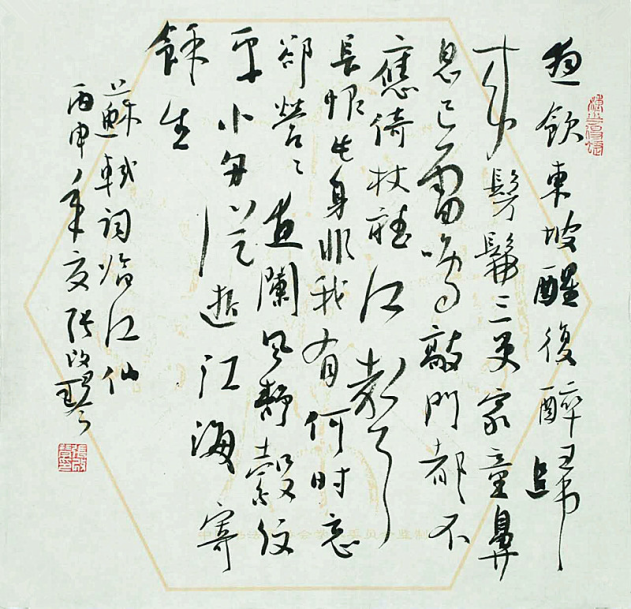 夜飲東坡醒復醉歸
來髣髴三更家童鼻
息已雷鳴敲門都不
應倚杖聽江聲
長恨此身非我有何時忘
卻營〻夜闌風靜縠紋
平小舟從此逝江海寄
餘生
蘇軾詞臨江仙
丙申年夏張